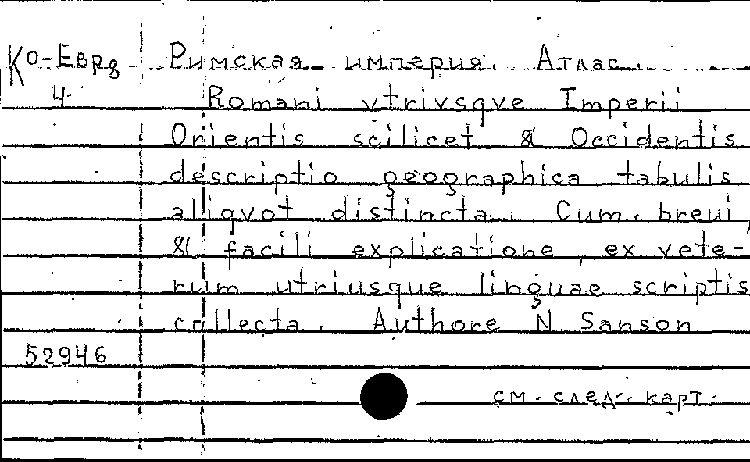 Ко-Евр8 Римская империя. Атлас.
4 Romani vtrivsqve Imperii
Orientis scilicet & Occidentis
descriptio geographica tabulis
aliqvot distincta. Cum. breui,
& facili explicatione, ex vete-
rum utriusque linguae scriptis
collecta. Authore N Sanson
52946
см. след. карт.